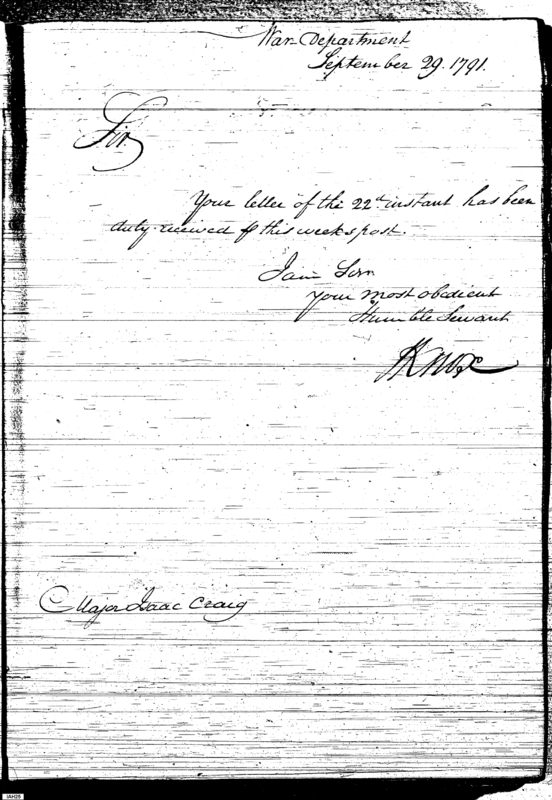 War Department
September 29. 1791.
Sir.
Your letter of the 22d instant has been
duly received ⅌ this week's post.
I am Sir
your most obedient
Humble Servant
HKnox
Major Isaac Craig
IAH28